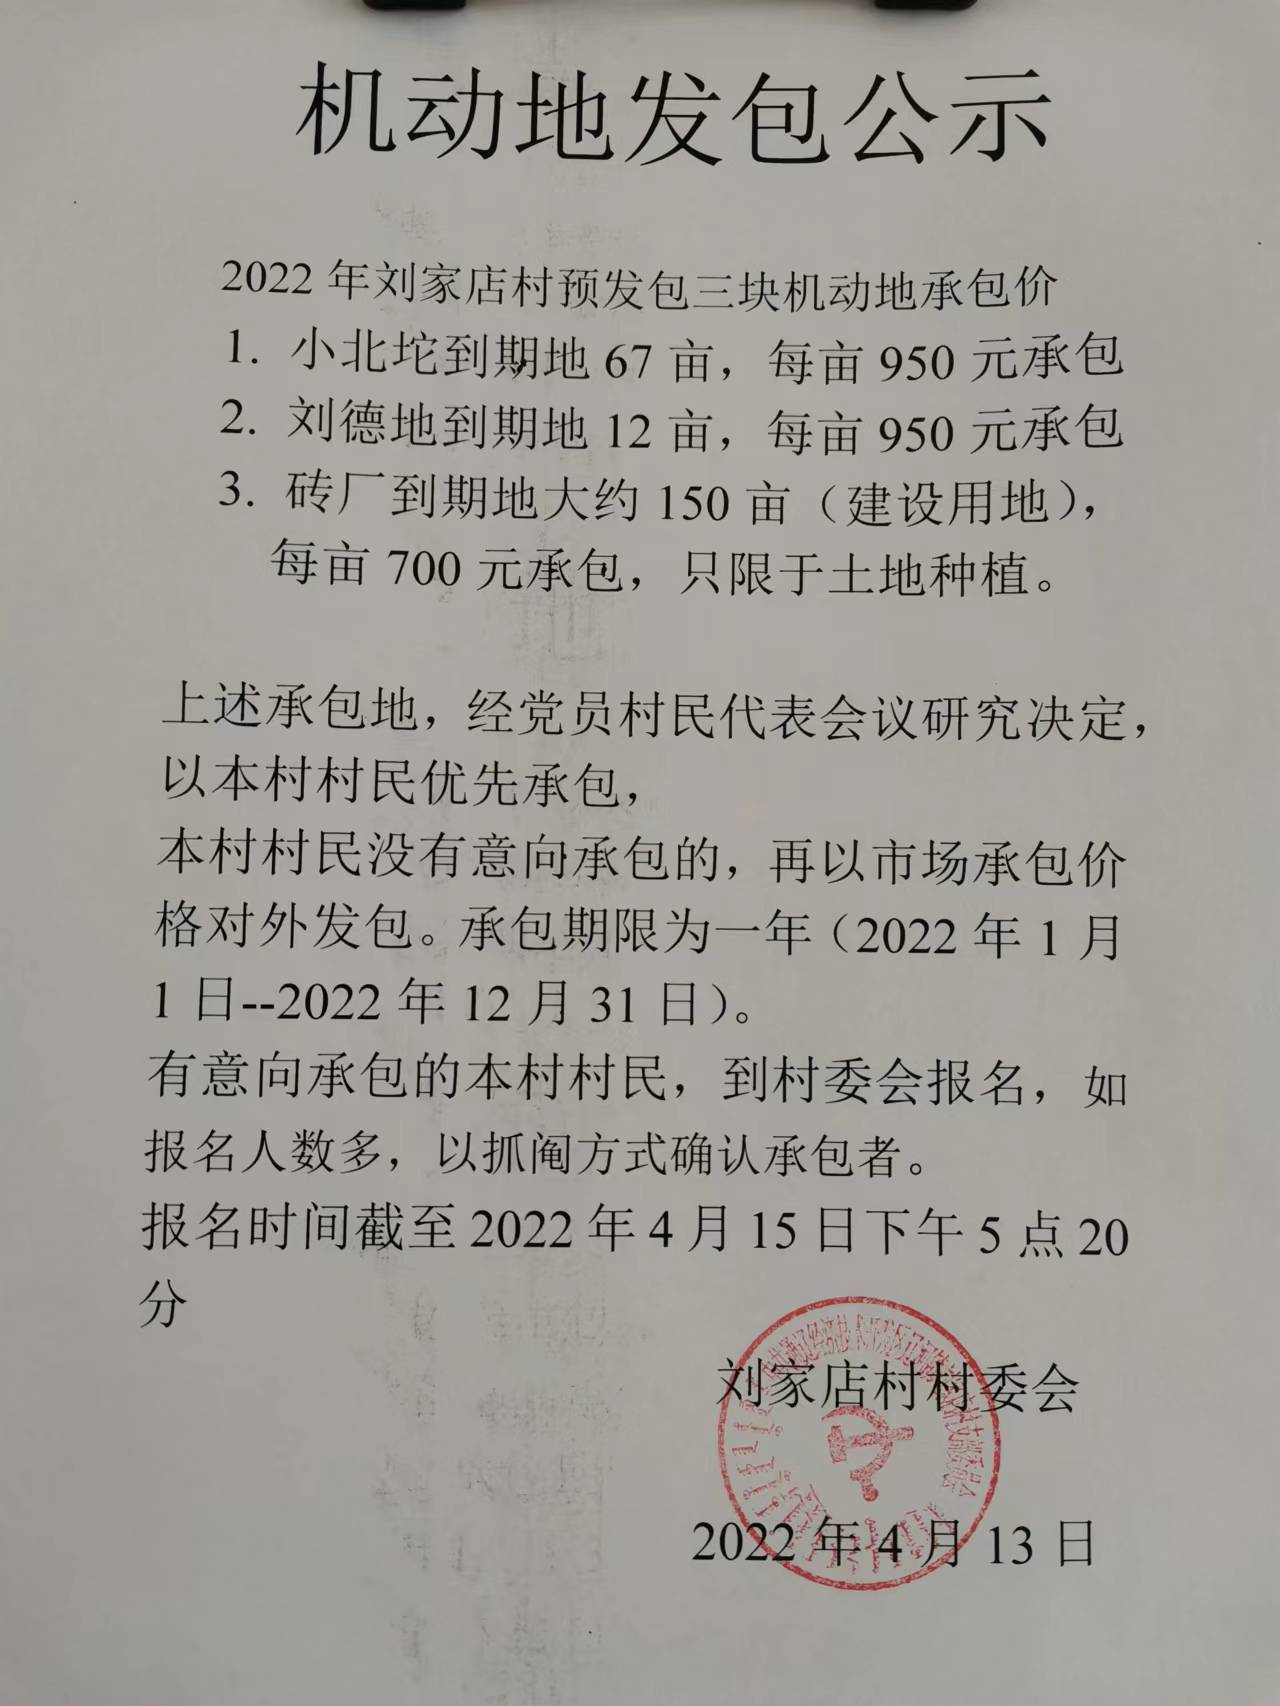 机动地发包公示
2022 年刘家店村预发包三块机动地承包价
1. 小北坨到期地 67 亩，每亩 950 元承包
2. 刘德地到期地 12 亩，每亩 950 元承包
3. 砖厂到期地大约 150 亩（建设用地），
每亩 700 元承包，只限于土地种植。
上述承包地，经党员村民代表会议研究决定，
以本村村民优先承包，
本村村民没有意向承包的，再以市场承包价
格对外发包。承包期限为一年（2022 年 1 月
1 日--2022 年 12 月 31 日）。
有意向承包的本村村民，到村委会报名，如
报名人数多，以抓阄方式确认承包者。
报名时间截至 2022 年 4 月 15 日下午 5 点 20
分
刘家店村村委会
2022 年 4 月 13 日